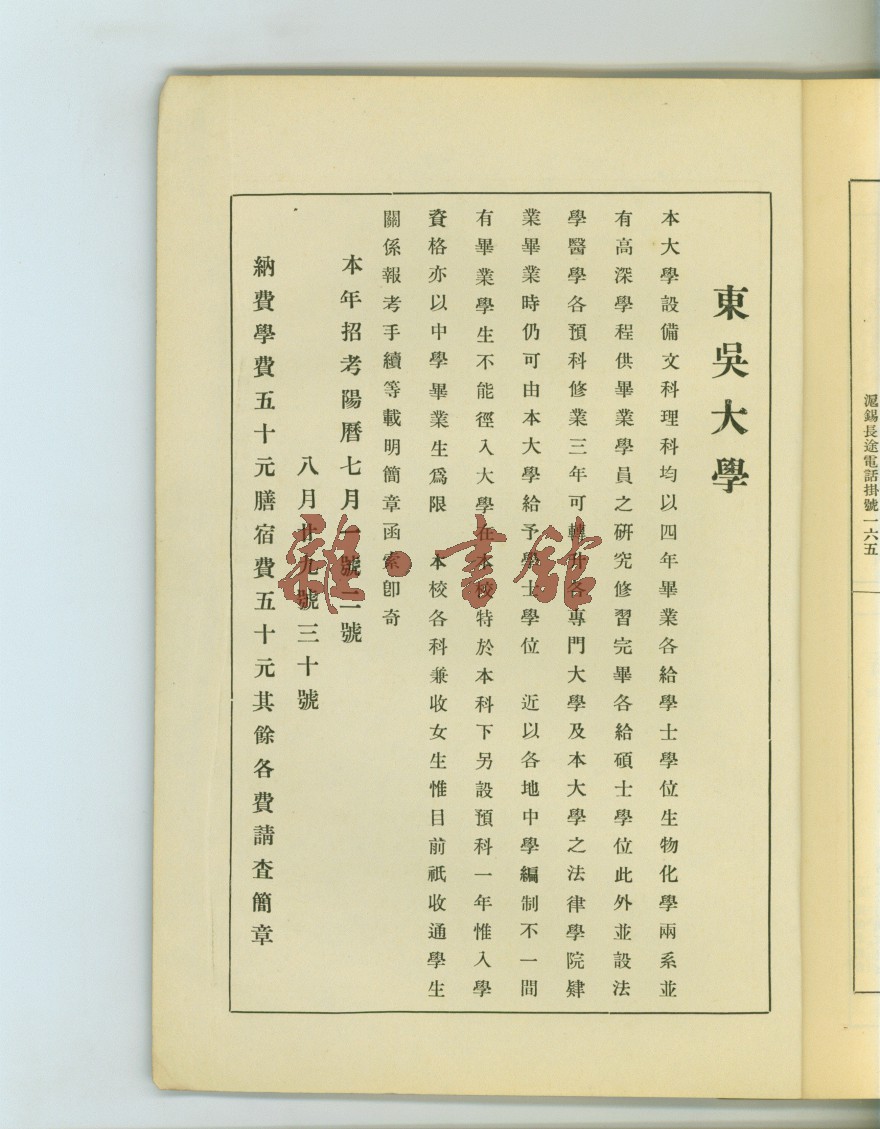 東吳大學
本大學設備文科理科均以四年畢業各給學士學位生物化學兩系並
有高深學程供畢業學員之硏究修習完畢各給碩士學位此外並設法
學醫學各預科修業三年可轉升各專門大學及本大學之法律學院肄
業畢業時仍可由本大學給予學士學位　近以各地中學編制不一間
有畢業學生不能徑入大學在本校特於本科下另設預科一年惟入學
資格亦以中學畢業生爲限　本校各科兼收女生惟目前祇收通學生
關係報考手續等載明簡章函索卽奇
本年招考陽曆七月一號二號
八月廿九號三十號
納費學費五十元膳宿費五十元其餘各費請查簡章
滬錫長途電話掛號一六五
雜·書館